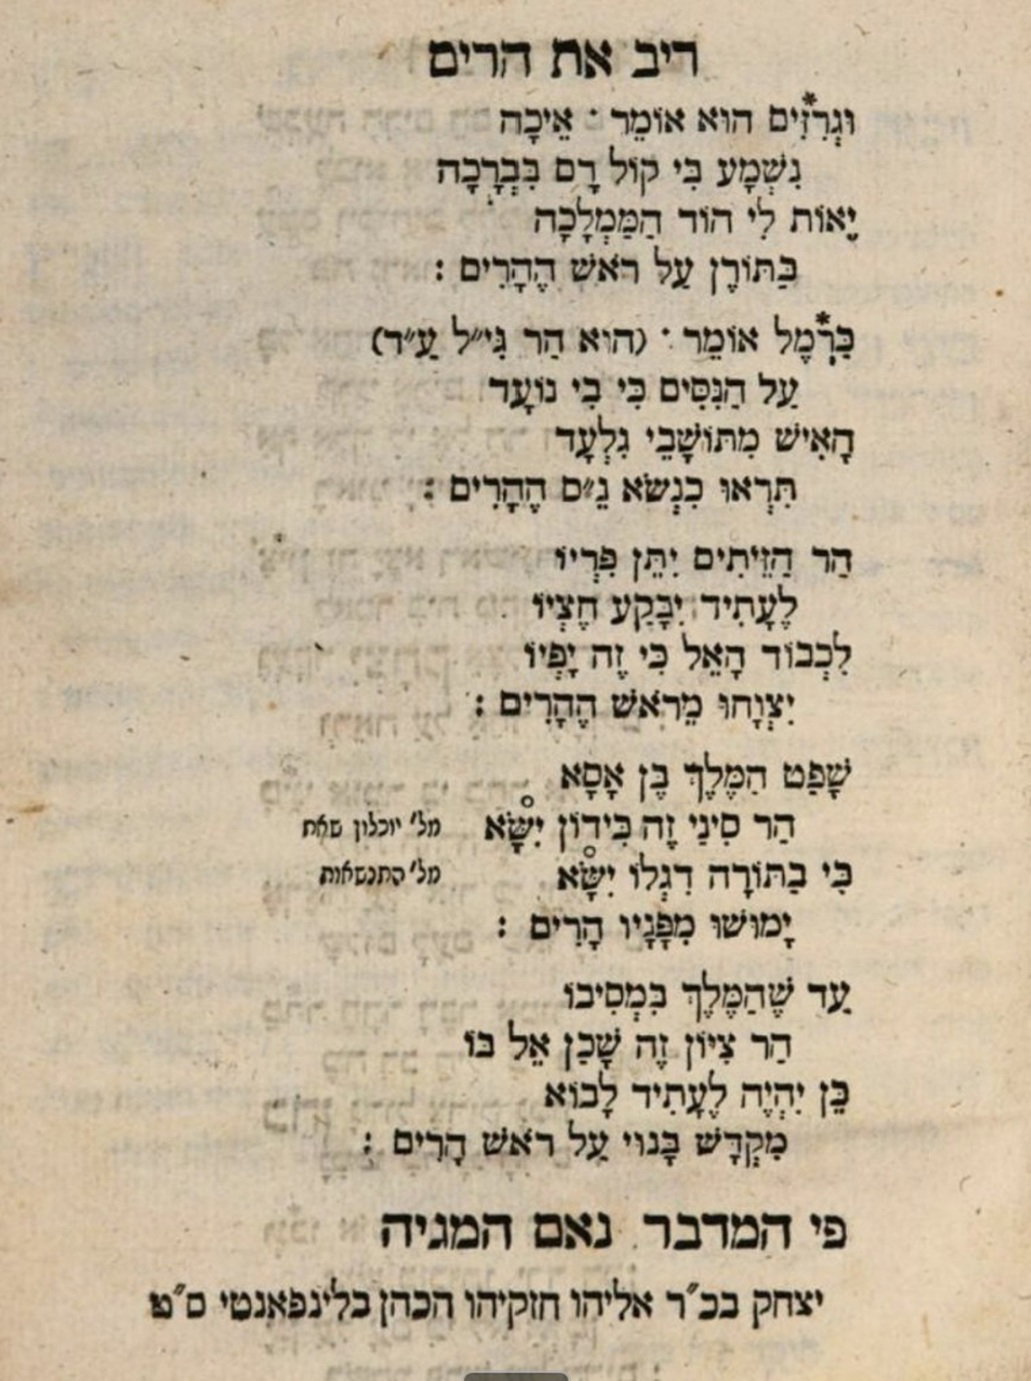 ריב את הרים
וּגְרִזִּים* הוּא אוֹמֵר · אֵיכָה
נִשְׁמָע בִּי קוֹל רָם בִּבְרָכָה
יָאוֹת לִי הוֹד הַמַּמְלָכָה
כַּתּוֹרֶן עַל רֹאשׁ הֶהָרִים :
כַּרְמֶל* אוֹמֵר · (הוּא הַר גִּי״ל עַ״ד)
עַל הַנִּסִּים כִּי בִי נוֹעָד
הָאִישׁ מִתּוֹשָׁבֵי גִלְעָד
תִּרְאוּ כִנְשֹׂא נֵ״ס הֶהָרִים :
הַר הַזֵּיתִים יִתֵּן פִּרְיוֹ
לֶעָתִיד יִבָּקַע חֶצְיוֹ
לִכְבוֹד הָאֵל כִּי זֶה יָפְיוֹ
יִצְוָחוּ מֵרֹאשׁ הֶהָרִים :
שָׁפַט הַמֶּלֶךְ בֶּן אָסָא
הַר סִינַי זֶה כִּידוֹן יִשָּׂא° מל׳ יוכלון שאת
כִּי בַתּוֹרָה דִגְלוֹ יִשָּׂא° מל׳ התנשאות
יָמוּשׁוּ מִפָּנָיו הָרִים :
עַד שֶׁהַמֶּלֶךְ בִּמְסִיבּוֹ
הַר צִיּוֹן זֶה שָׁכַן אֵל בּוֹ
כֵּן יִהְיֶה לֶעָתִיד לָבוֹא
מִקְדָּשׁ בָּנוּי עַל רֹאשׁ הָרִים :
פי המדבר נאם המגיה
יצחק בכ״ר אליהו חזקיהו הכהן בלינפאנטי ס״ט